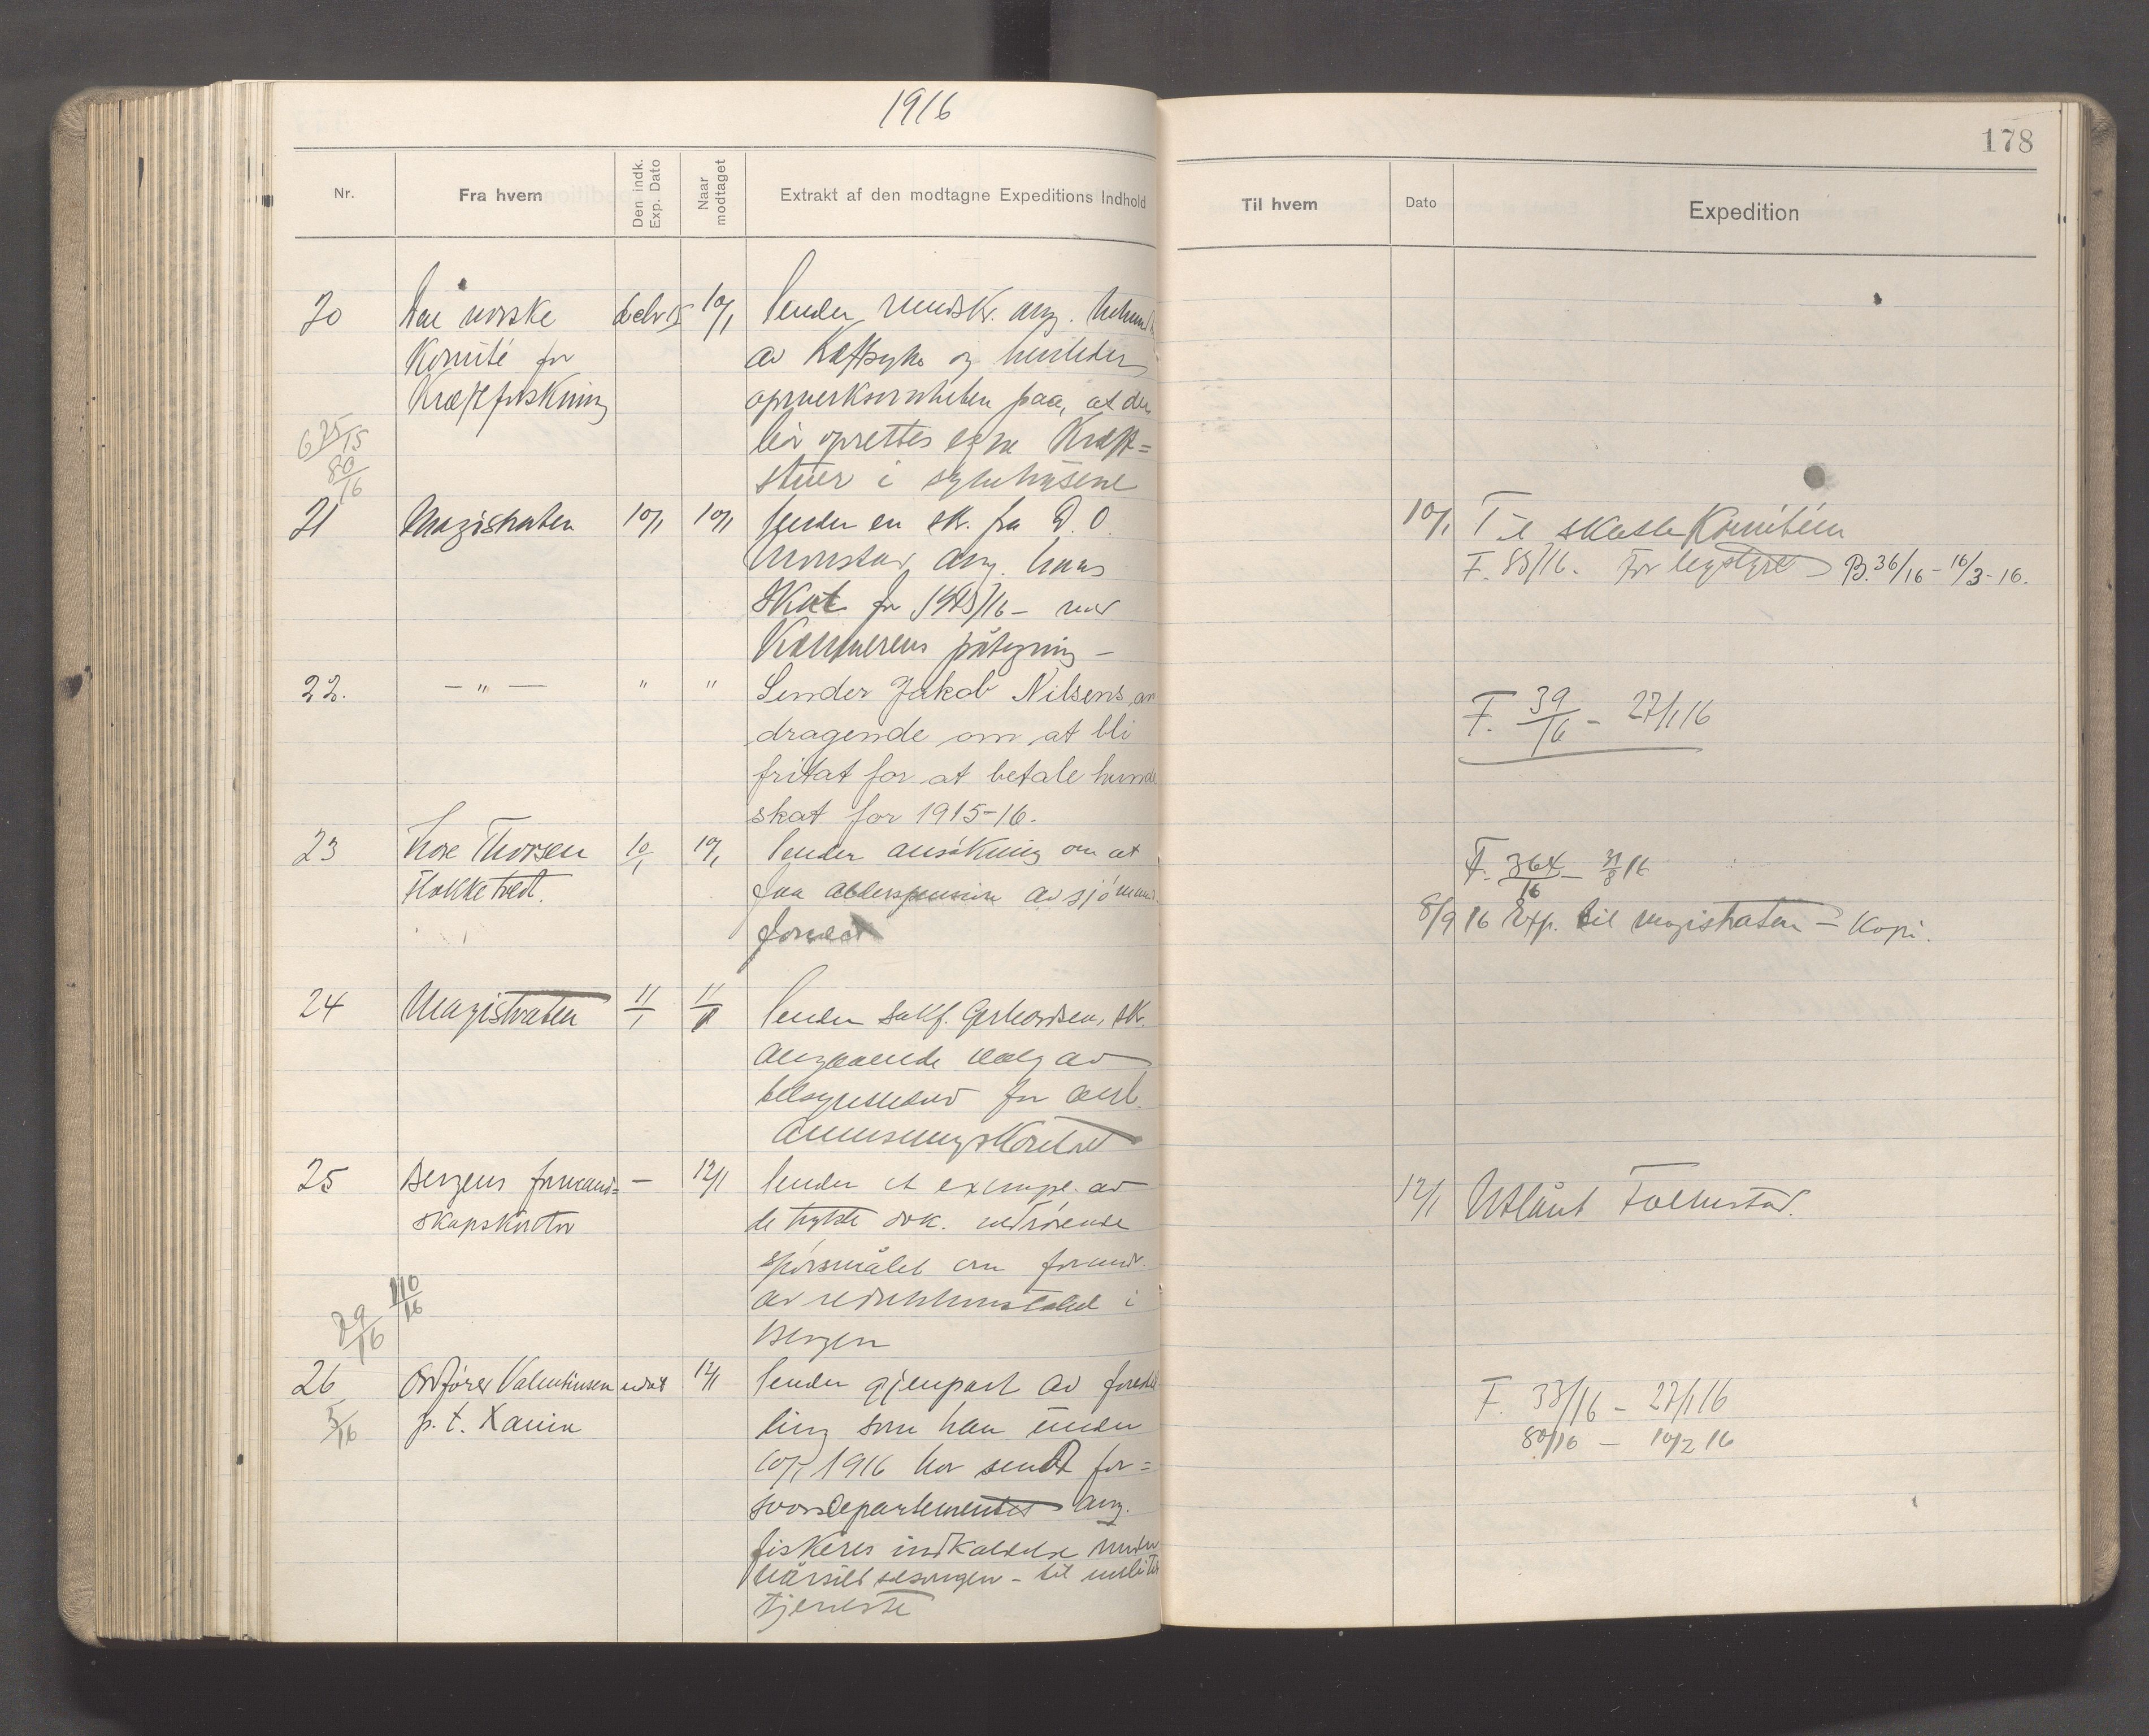 1916
178
Nr.
Fra hvem
Den indk. Exp. Dato
Naar modtaget
Extrakt af den modtagne Expeditions Indhold
Til hvem
Dato
Expedition
20 Den norske Komité for Kræftforskning
decbr 15 10/1
Sender rundskr. ang.
av Kræftsyke og henleder
opmerksomheten paa, at der
bør oprettes egne Kræft=
stuer i sykehusene
625/15
80/16
21 Magistraten 10/1 10/1 Sender en skr. fra D. O.
Monstad ang. hans
Skat for 1915/16 - med
Kæmnerens påtegning -
10/1 Til skattekomitéen
F. 85/16. For B. 36/16 - 16/3-16.
22. - " - " " Sender Jakob Nilsens an
dragende om at bli
fritat for at betale hunde
skat for 1915-16.
F. 39/16 - 27/1 16
23 Thorsen 10/1 10/1 Sender ansökning om at
faa alderspension av sjömands
fondet
F. 364/16 - 31/8 16
8/9 16 Exp. til magistraten - Kopi.
24 Magistraten 11/1 11/1 Sender sakf. Gerhardsen, skr.
angaaende valg av
tilsynsmand for arb.
anvisningskontoret
25 Bergens formand=
skapskontor
- 12/1 Sender et exempl. av
de trykte dok. vedrörende
spörsmålet om forandr.
av reduktionstabel i
Bergen
12/1 Utlånt Falkustad.
110/16
29/16
26 Ordförer Valentinsen udat 12/1 Sender gjenpart av forestil
p. t. ling som han under
5/16
10/1 1916 har sendt for=
svarsdepartementet ang.
fiskeres indkaldelse under
vårsildsesongen - til militær
tjeneste
F. 33/16 - 27/1 16
80/16 - 10/2 16